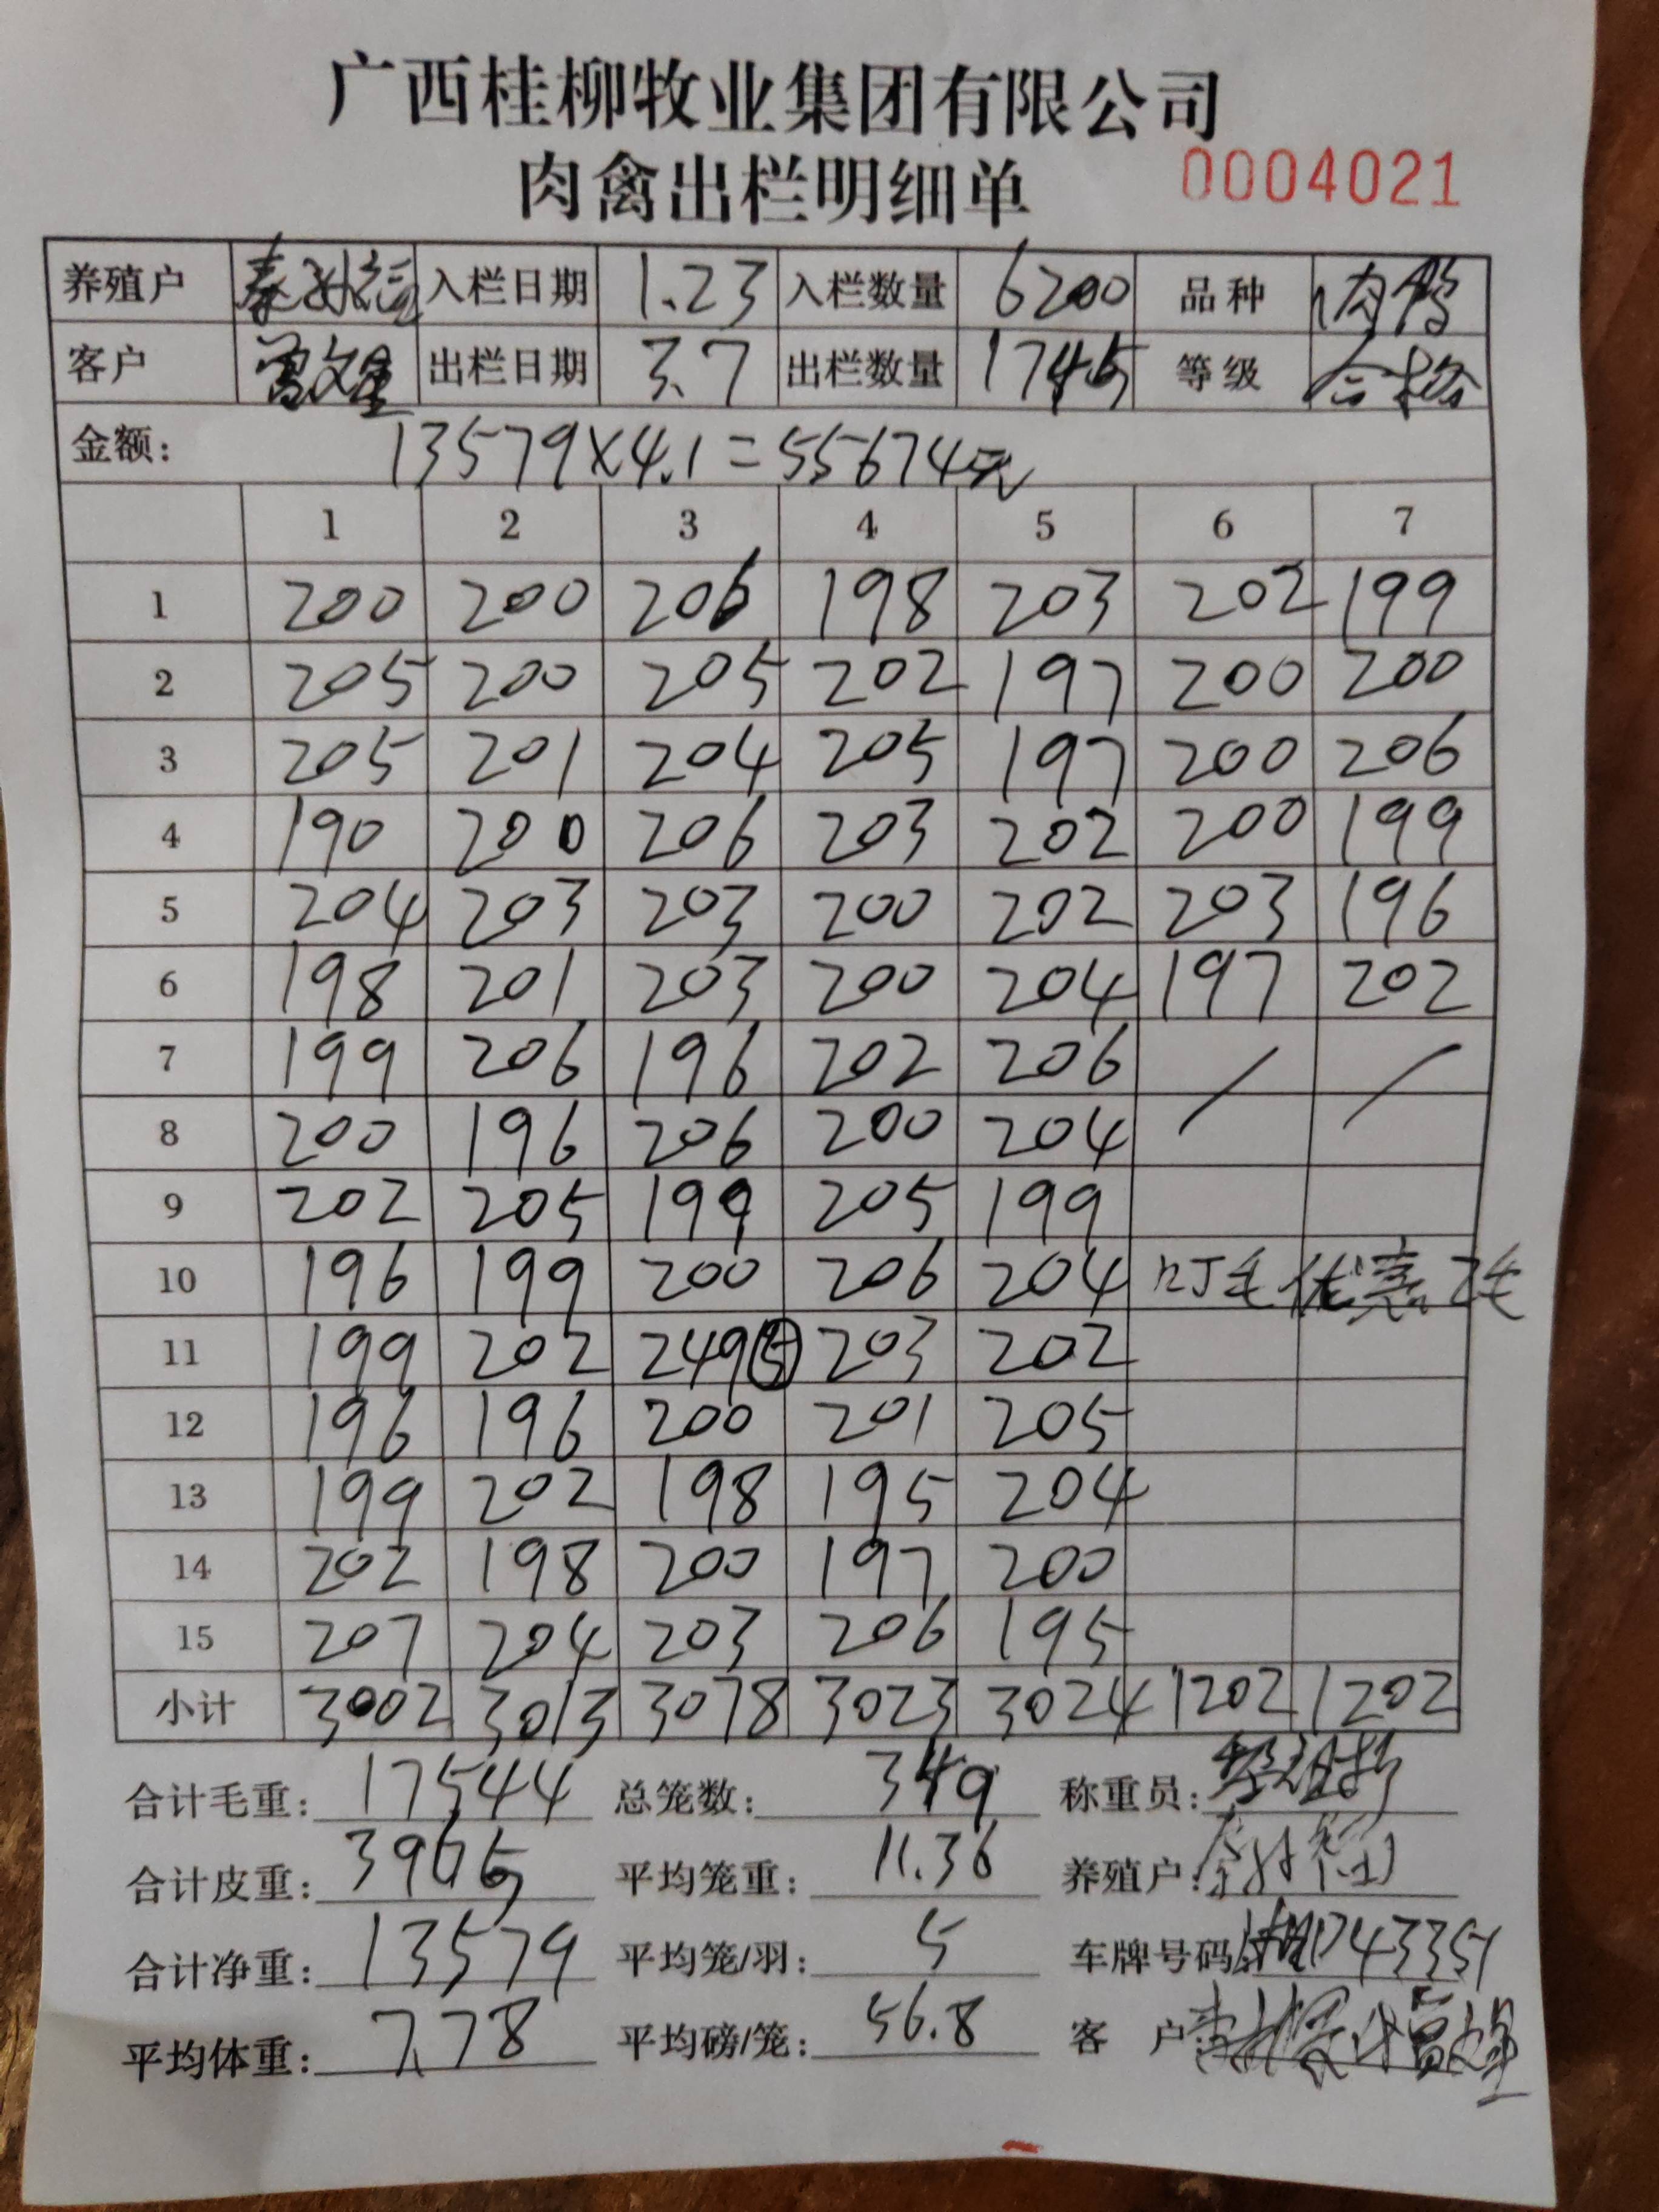 广西桂柳牧业集团有限公司
肉禽出栏明细单 0004021
养殖户 入栏日期 1.23 入栏数量 6200 品种 肉鸭
客户 出栏日期 3.7 出栏数量 1745 等级 合格
金额: 13579×4.1=55674元
1 2 3 4 5 6 7
1 200 200 206 198 203 202 199
2 205 200 205 202 197 200 200
3 205 201 204 205 197 200 206
4 190 200 206 203 202 200 199
5 204 203 203 200 202 203 196
6 198 201 203 200 204 197 202
7 199 206 196 202 206 / /
8 200 196 206 200 204
9 202 205 199 205 199
10 196 199 200 206 204 优惠2毛
11 199 202 249⑤ 203 202
12 196 196 200 201 205
13 199 202 198 195 204
14 202 198 200 197 200
15 207 204 203 206 195
小计 3002 3013 3078 3023 3024 1202 1202
合计毛重: 17544 总笼数: 349 称重员:
合计皮重: 3965 平均笼重: 11.36 养殖户:
合计净重: 13579 平均笼/羽: 5 车牌号码:
平均体重: 7.78 平均磅/笼: 56.8 客 户: